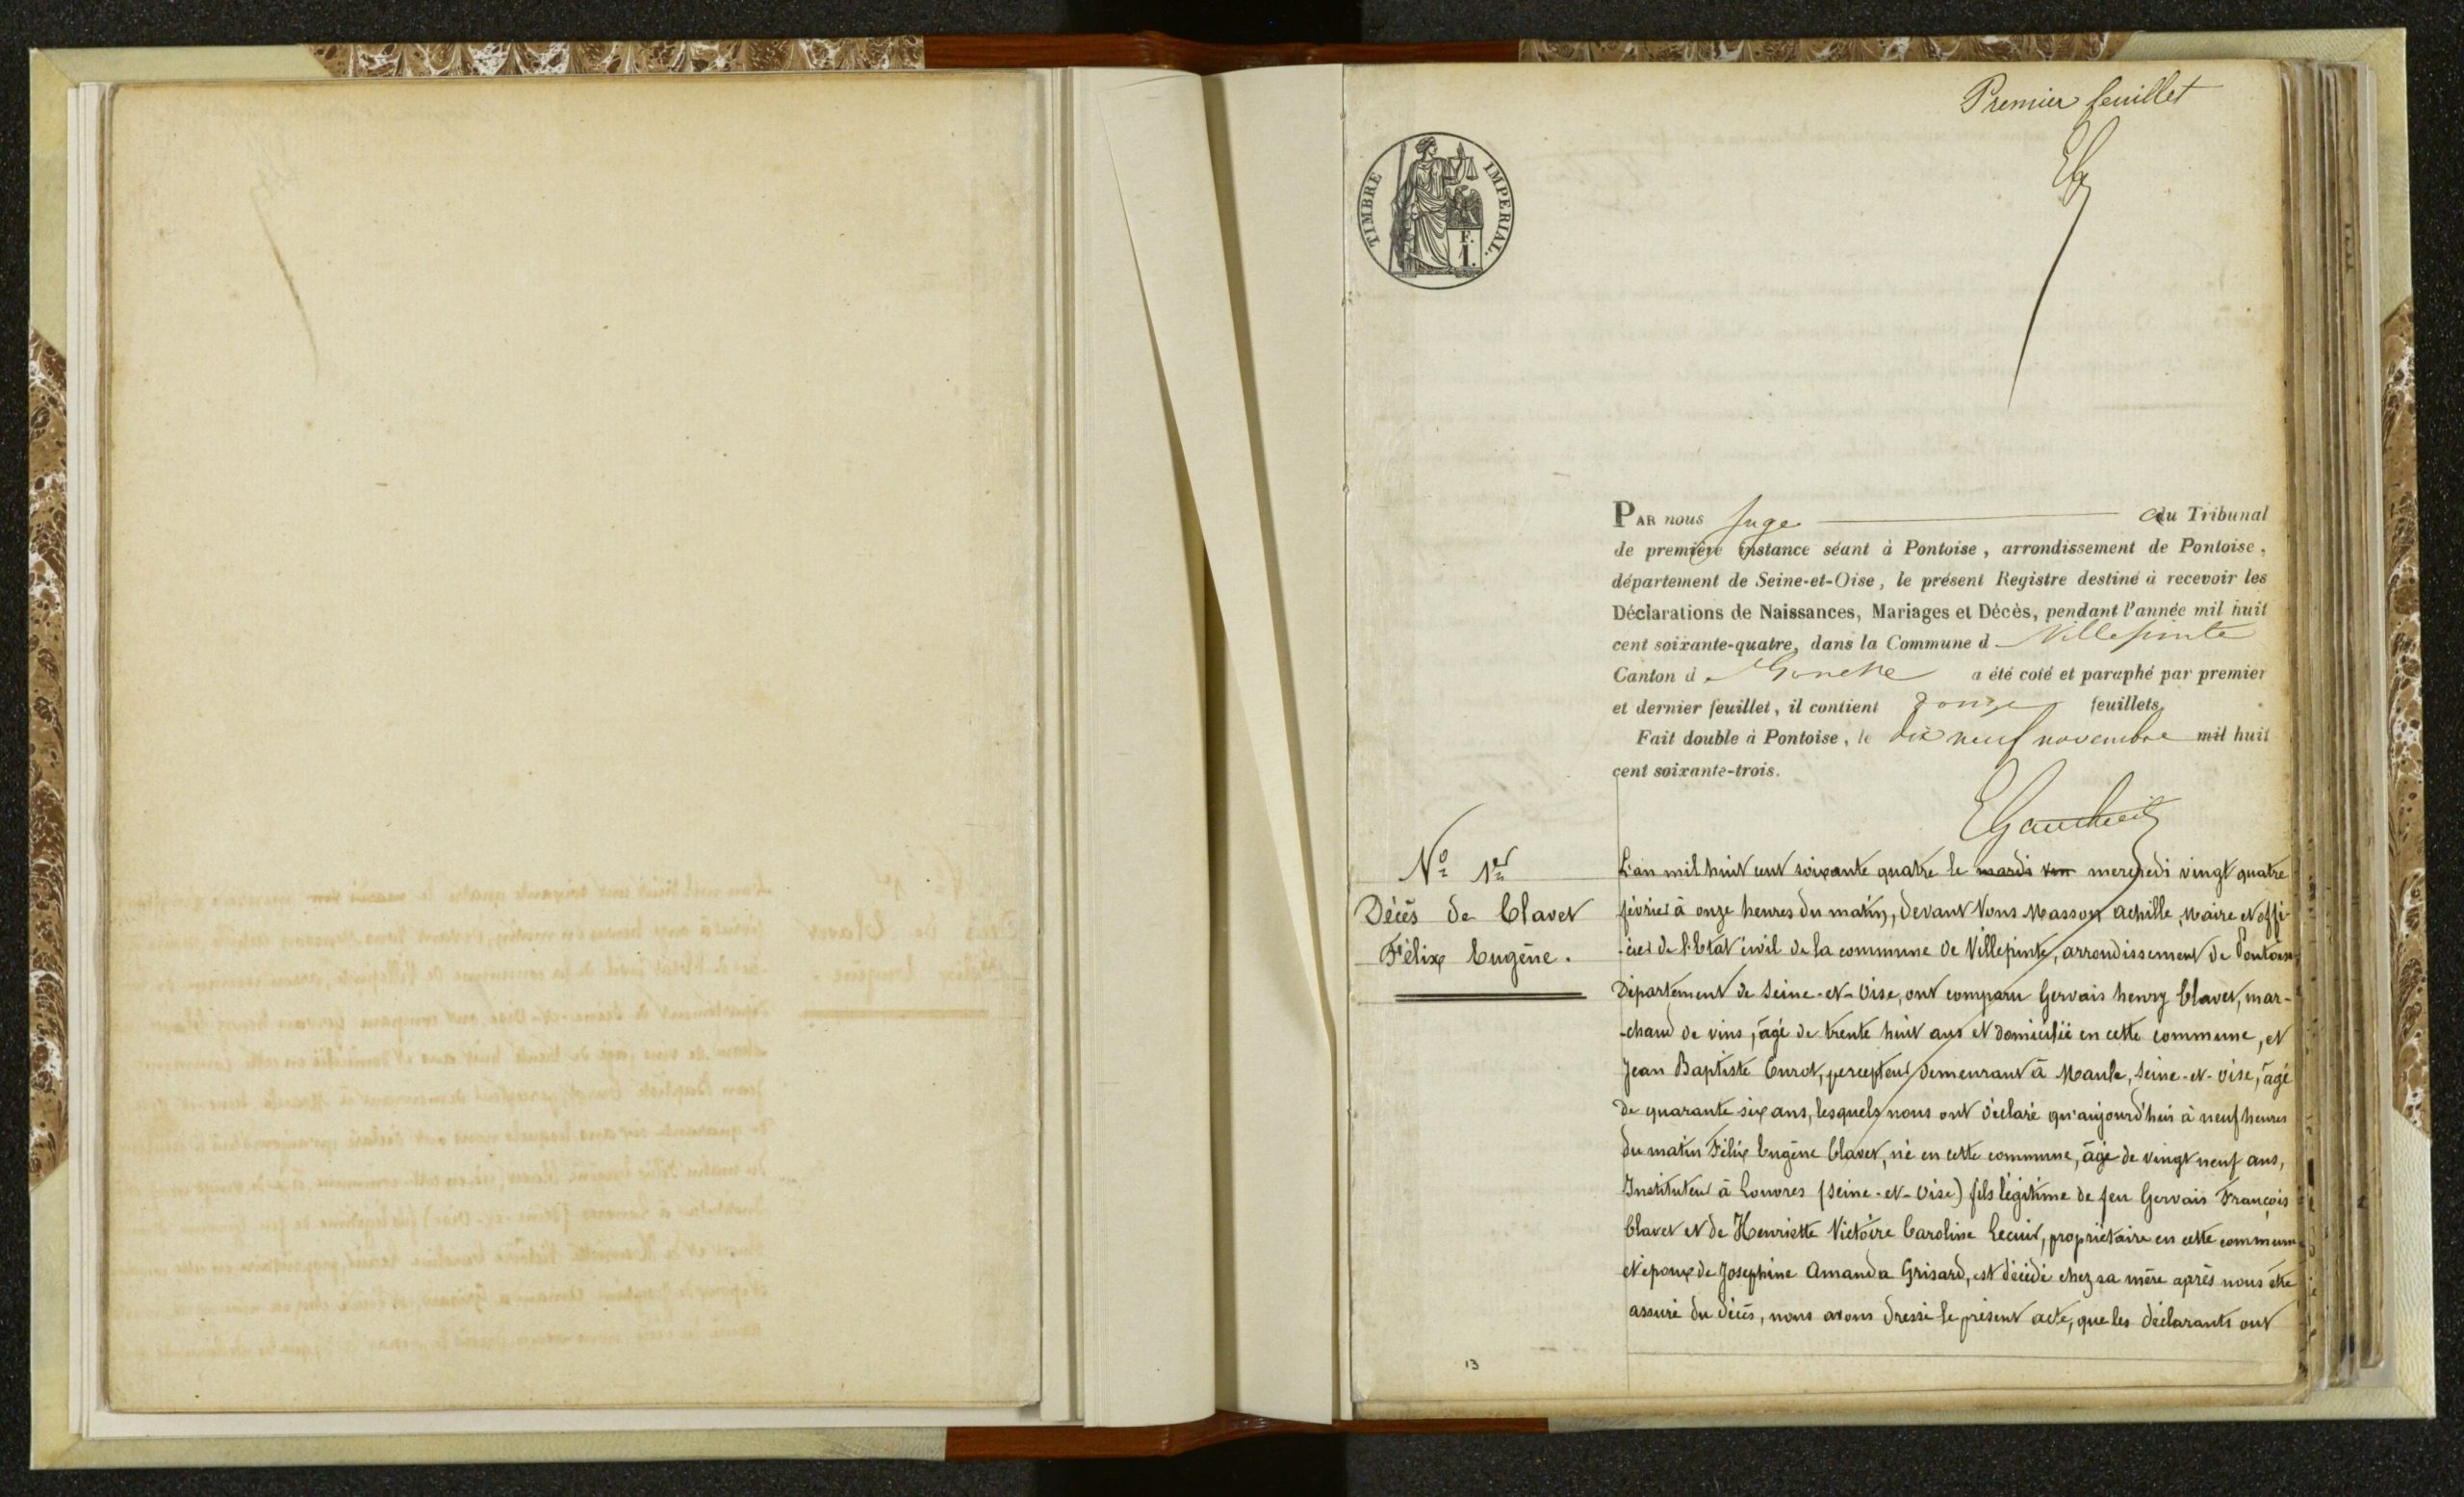 Premier feuillet
TIMBRE IMPERIAL.
F.
1.
PAR nous Juge du Tribunal
de première instance séant à Pontoise, arrondissement de Pontoise,
département de Seine-et-Oise, le présent Registre destiné à recevoir les
Déclarations de Naissances, Mariages et Décès, pendant l'année mil huit
cent soixante-quatre, dans la Commune d Villepinte
Canton d Gonesse a été coté et paraphé par premier
et dernier feuillet, il contient feuillets
Fait double à Pontoise, le dix neuf novembre mil huit
cent soixante-trois.
Nº 1er
Décès de Clavet
Félix Eugène.
L'an mil huit cent soixante quatre le mardi vin mercredi vingt quatre
février à onze heures du matin, devant Nous Masson Achille, Maire et offi-
-cier de l'Etat civil de la commune de Villepinte, arrondissement de Pontoise
Département de Seine-et-Oise, ont comparu Gervais henry Clavet, mar-
-chand de vins, âgé de trente huit ans et domicilié en cette commune, et
Jean Baptiste Curot, percepteur demeurant à Maule, Seine-et-Oise, âgé
de quarante six ans, lesquels nous ont déclaré qu'aujourd'hui à neuf heures
du matin Félix Eugène Clavet, né en cette commune, âgé de vingt neuf ans,
Instituteur à Louvres (Seine-et-Oise) fils légitime de feu Gervais François
Clavet et de Henriette Victoire Caroline Lecuir, propriétaire en cette commune
et époux de Josephine Amanda Grisard, est décédé chez sa mère après nous être
assuré du décès, nous avons dressé le présent acte, que les déclarants ont
13